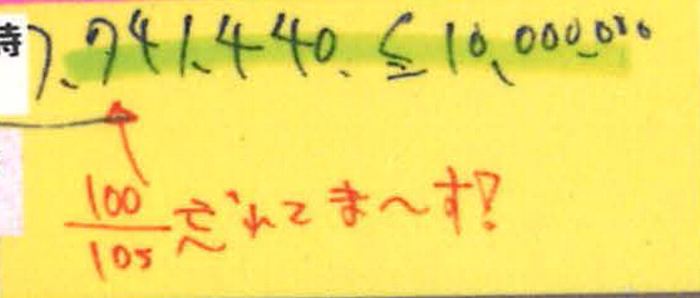 時
7,941,440. ≦ 10,000,000
100
105 忘れてま〜す?